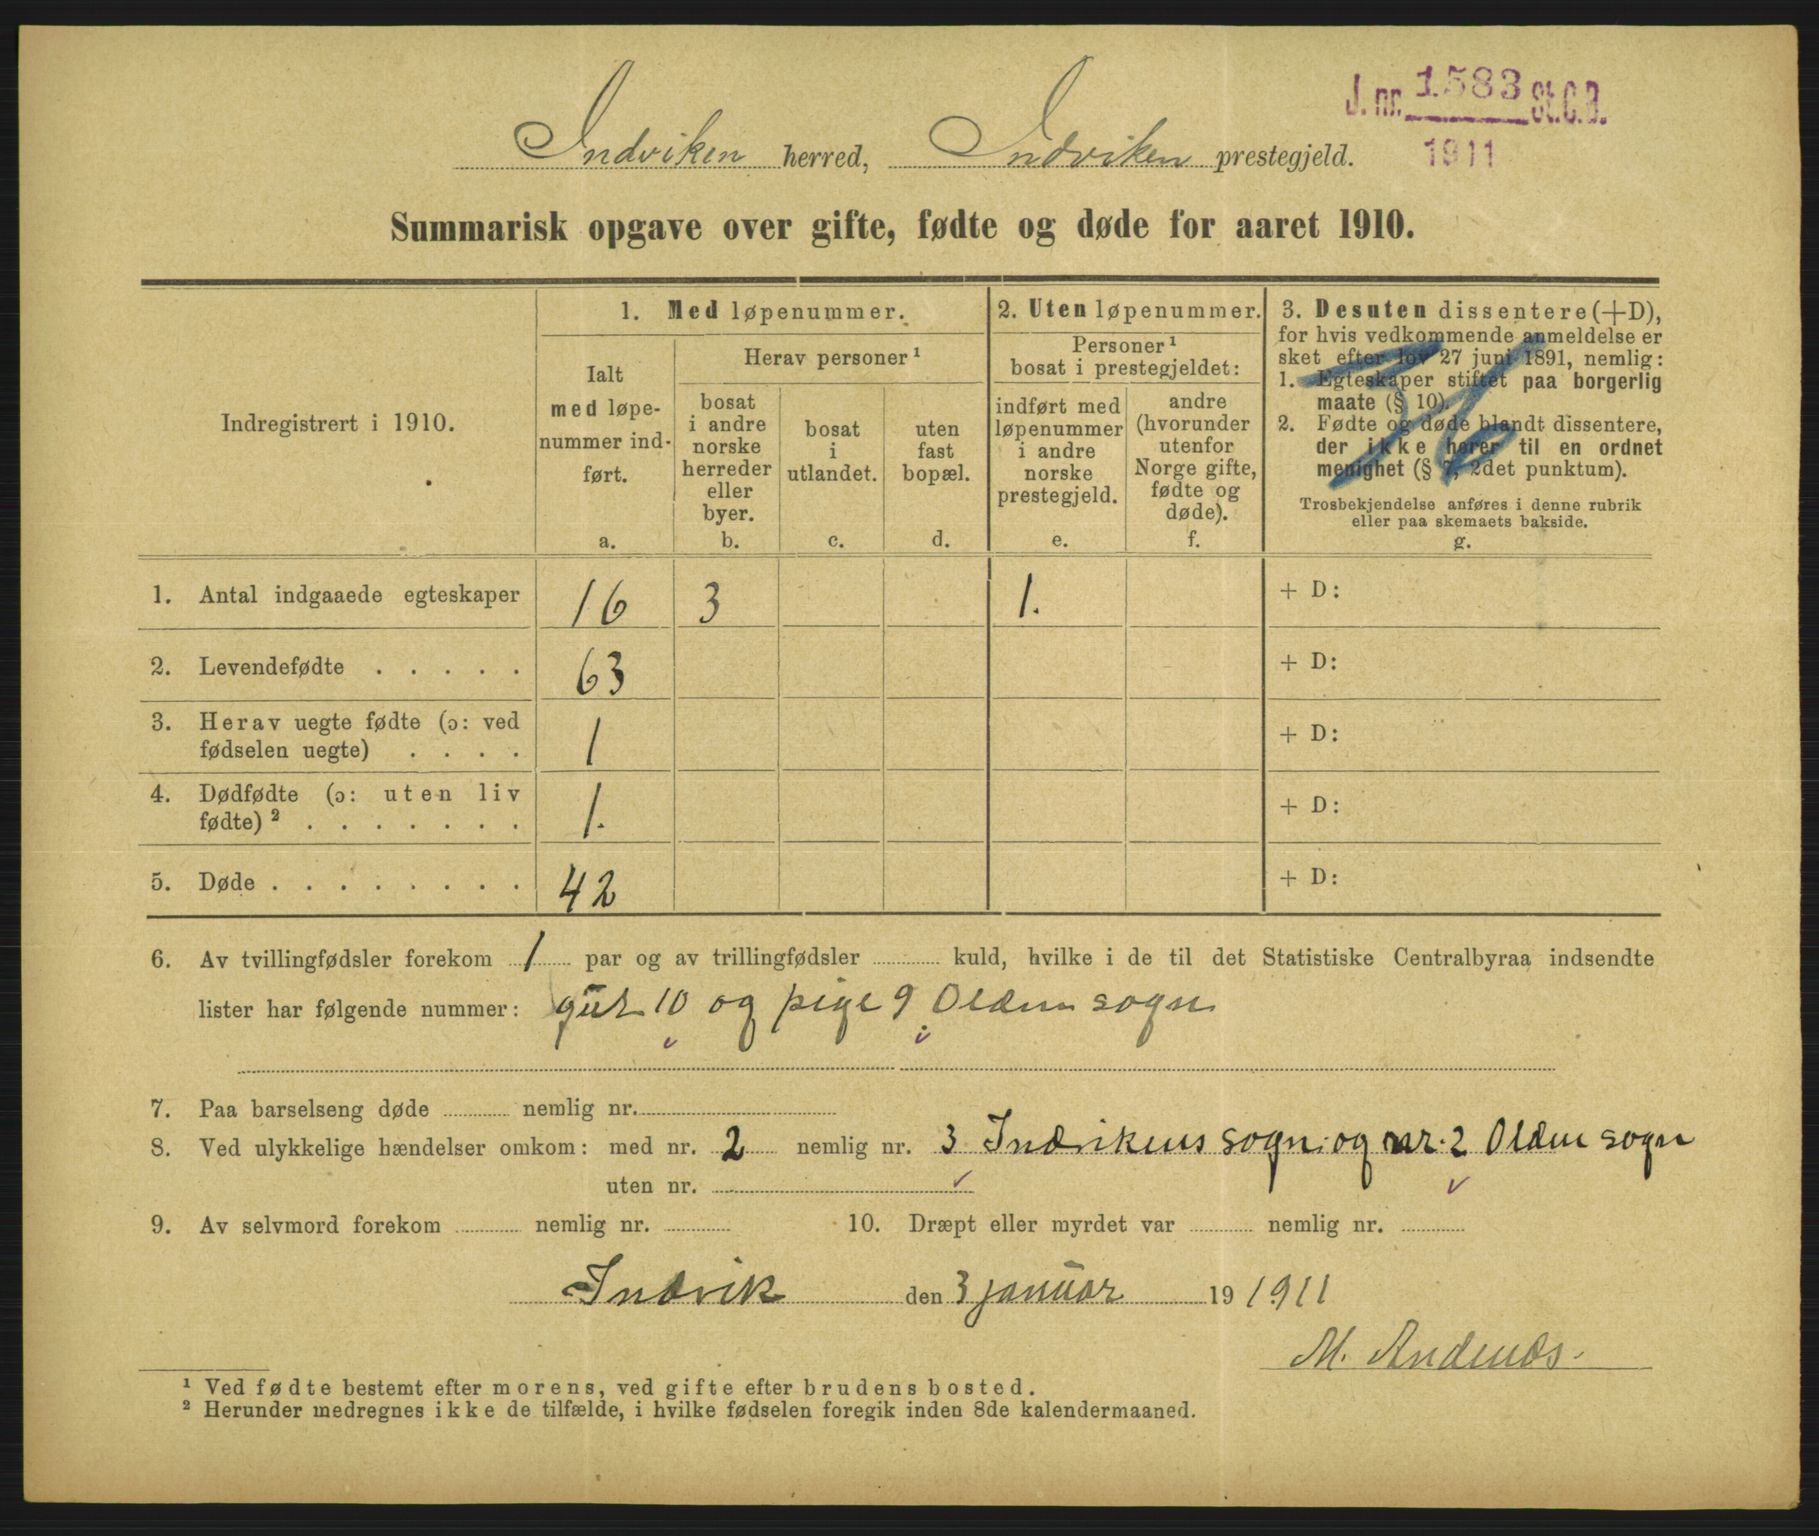 J. nr. 1583 St. C. B.
1911
Indviken herred, Indviken prestegjeld.
Summarisk opgave over gifte, fødte og døde for aaret 1910.
Indregistrert i 1910.
1. Med løpenummer.
Ialt
med løpe-
nummer ind-
ført.
a.
Herav personer ¹
bosat
i andre
norske
herreder
eller
byer.
b.
bosat
i
utlandet.
c.
uten
fast
bopæl.
d.
2. Uten løpenummer.
Personer ¹
bosat i prestegjeldet:
indført med
løpenummer
i andre
norske
prestegjeld.
e.
andre
(hvorunder
utenfor
Norge gifte,
fødte og
døde).
f.
3. Desuten dissentere (+D),
for hvis vedkommende anmeldelse er
sket efter lov 27 juni 1891, nemlig:
1. Egteskaper stiftet paa borgerlig
maate (§ 10).
2. Fødte og døde blandt dissentere,
der ikke hører til en ordnet
menighet (§ 7, 2det punktum).
Trosbekjendelse anføres i denne rubrik
eller paa skemaets bakside.
g.
1. Antal indgaaede egteskaper 16 3 1. + D:
2. Levendefødte . . . . . 63 + D:
3. Herav uegte fødte (ɔ: ved
fødselen uegte) . . . . 1 + D:
4. Dødfødte (ɔ: uten liv
fødte) ² . . . . . . . 1. + D:
5. Døde . . . . . . . . 42 + D:
6. Av tvillingfødsler forekom 1 par og av trillingfødsler kuld, hvilke i de til det Statistiske Centralbyraa indsendte
lister har følgende nummer: gut 10 og pige 9 Olden sogn
7. Paa barselseng døde nemlig nr.
8. Ved ulykkelige hændelser omkom: med nr. 2 nemlig nr. 3 Indvikens sogn og nr. 2 Olden sogn
uten nr.
9. Av selvmord forekom nemlig nr. 10. Dræpt eller myrdet var nemlig nr.
Indvik den 3 januar 19 1911
M. Andenæs.
¹ Ved fødte bestemt efter morens, ved gifte efter brudens bosted.
² Herunder medregnes ikke de tilfælde, i hvilke fødselen foregik inden 8de kalendermaaned.